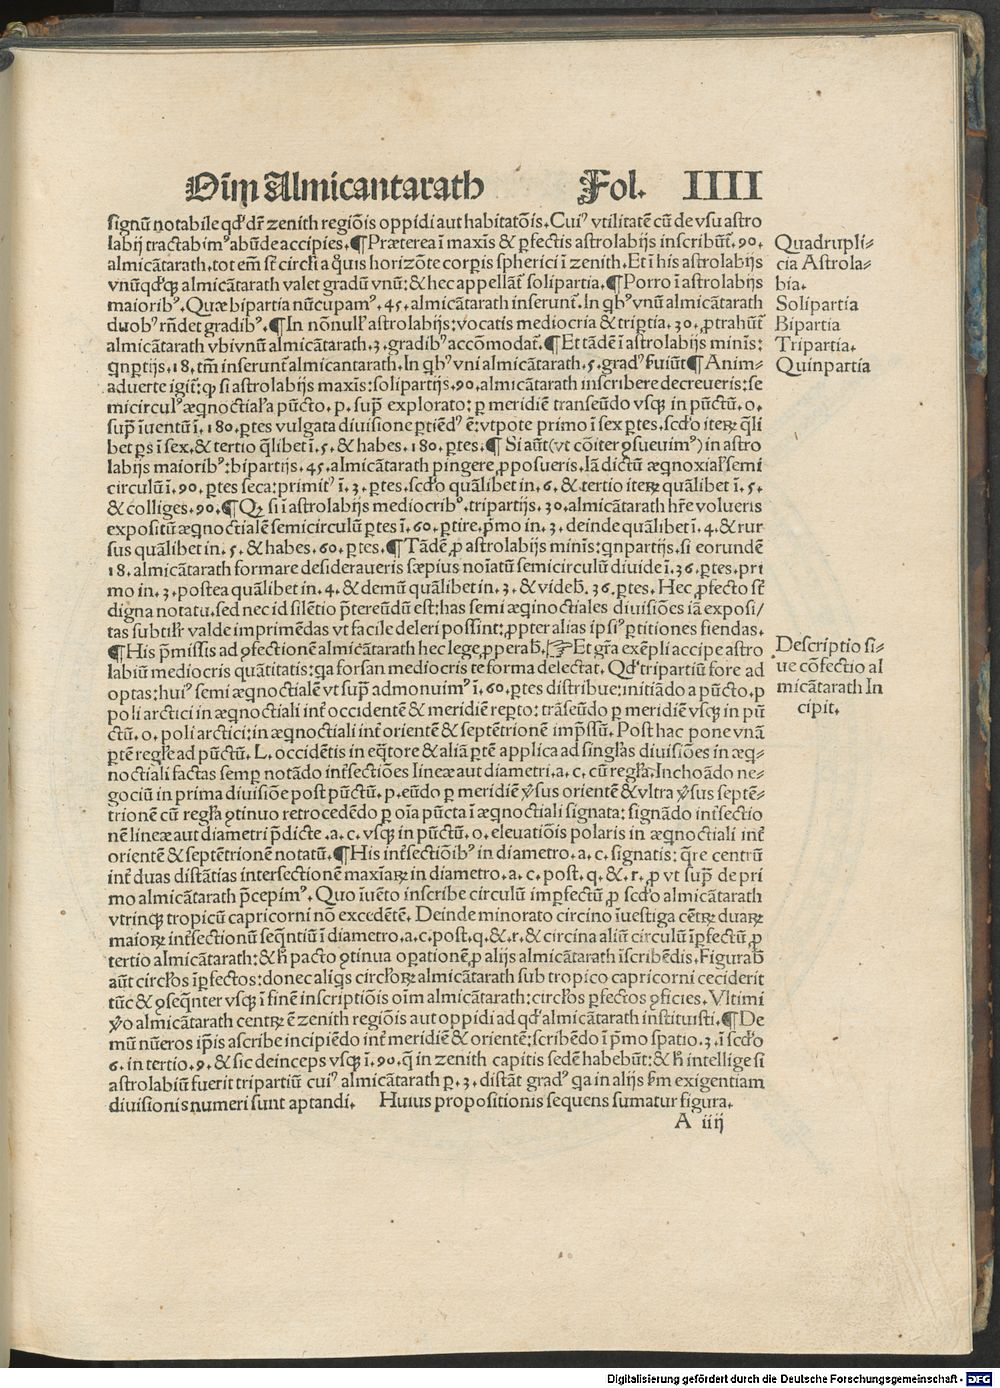 Oĩm Almicantarath Fol. IIII
signũ notabile qd' dr̃ zenith regiõis oppidi aut habitatõis. Cuiꝰ vtilitatẽ cũ de vsu astro
labij tractabimꝰ abũde accipies. ¶ Præterea ĩ maxĩs & ꝑfectis astrolabijs inscribũt̃ .90.
almicãtarath. tot em̃ st̃ circl'i a q̃uis horizõte corꝑis spherici ĩ zenith. Et ĩ his astrolabijs
vnũqd'qꝫ almicãtarath valet gradũ vnũ: & hec appellãt̃ solipartia. ¶ Porro ĩ astrolabijs
maioribꝰ. Quæ bipartia nũcupamꝰ .45. almicãtarath inserunt̃. In qbꝰ vnũ almicãtarath
duobꝰ rñdet gradibꝰ. ¶ In nõnull' astrolabijs: vocatis mediocria & triꝑtia .30. ꝓtrahũt̃
almicãtarath vbi vnũ almicãtarath .3. gradibꝰ accõmodat̃. ¶ Et tãdẽ ĩ astrolabijs minĩs:
qnꝑtijs .18. tm̃ inserunt̃ almicantarath. In qbꝰ vni almicãtarath .5. gradꝰ ẜuiũt ¶ Anim⸗
aduerte igit̃: ꝙ si astrolabijs maxis: solipartijs .90. almicãtarath inscribere decreueris: se
micirculꝰ æqnoctial'a pũcto .p. supꝰ explorato: ꝑ meridiẽ transeũdo vsqꝫ in pũctũ .o.
supꝰ ĩuentũ ĩ .180. ꝑtes vulgata diuisione ꝑtiẽdꝰ ẽ: vtpote primo ĩ sex ꝑtes. scd'o iteꝝ q̃li
bet ꝑs ĩ sex. & tertio q̃libet ĩ .5. & habes .180. ꝑtes. ¶ Si aũt (vt cõiter ꝯsueuimꝰ) in astro
labijs maioribꝰ: bipartijs .45. almicãtarath pingere ꝓposueris. Iã dictũ æqnoxial' semi
circulũ ĩ .90. ꝑtes seca: primitꝰ ĩ .3. ꝑtes. scd'o quãlibet in .6. & tertio iteꝝ quãlibet ĩ .5.
& colliges .90. ¶ Qꝫ si ĩ astrolabijs mediocribꝰ. tripartijs .30. almicãtarath hr̃e volueris
expositũ æqnoctialẽ semicirculũ ꝑtes ĩ .60. ꝑtire. p̃mo in .3. deinde quãlibet ĩ .4. & rur
sus quãlibet in .5. & habes .60. ꝑtes. ¶ Tãdẽ ꝓ astrolabijs minĩs: qnꝑtijs. si eorundẽ
18. almicãtarath formare desideraueris sæpius noĩatũ semicirculũ diuide ĩ .36. ꝑtes. pri
mo in .3. postea quãlibet in .4. & demũ quãlibet in .3. & videb̃ .36. ꝑtes. Hec ꝓfecto st̃
digna notatu. sed nec id silẽtio p̃tereũdũ est: has semi æqinoctiales diuisiões iã exposi/
tas subtilr̃ valde imprimẽdas vt facile deleri possint: ꝓpter alias ipsiꝰ ꝑtitiones fiendas.
¶ His p̃missis ad ꝯfectionẽ almicãtarath hec lege, ꝓperab̃. ☞ Et gr̃a exẽpli accipe astro
labiũ mediocris quãtitatis: qa forsan mediocris te forma delectat. Qd' tripartiũ fore ad
optas: huiꝰ semi æqnoctialẽ vt supꝰ admonuimꝰ ĩ .60. ꝑtes distribue: initiãdo a pũcto .p
poli arctici in æqnoctiali int̃ occidentẽ & meridiẽ reꝑto: trãseũdo ꝑ meridiẽ vsqꝫ in pũ
ctũ .o. poli arctici: in æqnoctiali int̃ orientẽ & septẽtrionẽ imp̃ssũ. Post hac pone vnã
ꝑtẽ regl'e ad pũctũ .L. occidẽtis in eq̃tore & aliã ꝑtẽ applica ad singl'as diuisiões in æq⸗
noctiali factas semꝑ notãdo int̃sectiões lineæ aut diametri .a.c. cũ regl'a. Inchoãdo ne⸗
gociũ in prima diuisiõe post pũctũ .p. eũdo ꝑ meridiẽ ṽsus orientẽ & vltra ṽsus septẽ⸗
trionẽ cũ regl'a ꝯtinuo retrocedẽdo ꝑ oĩa pũcta ĩ æqnoctiali signata: signãdo int̃sectio
nẽ lineæ aut diametri p̃dicte .a.c. vsqꝫ in pũctũ .o. eleuatiõis polaris in æqnoctiali int̃
orientẽ & septẽtrionẽ notatũ. ¶ His int̃sectiõibꝰ in diametro .a.c. signatis: q̃re centrũ
int̃ duas distãtias intersectionẽ maxĩaꝝ in diametro .a.c. post .q. & .r. ꝓ vt supꝰ de pri
mo almicãtarath p̃cepimꝰ. Quo ĩuẽto inscribe circulũ imꝑfectũ ꝓ scd'o almicãtarath
vtrinqꝫ tropicũ capricorni nõ excedẽtẽ. Deinde minorato circino ĩuestiga cẽtꝝ duaꝝ
maioꝝ int̃sectionũ seq̃ntiũ ĩ diametro .a.c. post .q. & .r. & circina aliũ circulũ ĩꝑfectũ ꝓ
tertio almicãtarath: & h̃ pacto ꝯtinua oꝑationẽ, ꝓ alijs almicãtarath ĩscribẽdis. Figurab̃
aũt circl'os ĩꝑfectos: donec aliqs circl'oꝝ almicãtarath sub tropico capricorni ceciderit
tũc & ꝯseq̃nter vsqꝫ ĩ finẽ inscriptiõis oĩm almicãtarath: circl'os ꝑfectos ꝯficies. Vltimi
ṽo almicãtarath centꝝ ẽ zenith regiõis aut oppidi ad qd' almicãtarath instituisti. ¶ De
mũ nũeros ip̃is ascribe incipiẽdo int̃ meridiẽ & orientẽ: scribẽdo ĩ p̃mo spatio .3. ĩ scd'o
6. in tertio .9. & sic deinceps vsqꝫ ĩ .90. q̃ in zenith capitis sedẽ habebũt: & h̃ intellige si
astrolabiũ fuerit tripartiũ cuiꝰ almicãtarath ꝑ .3. distãt gradꝰ qa in alijs ẜm exigentiam
diuisionis numeri sunt aptandi. Huius propositionis sequens sumatur figura.
A iiij
Quadrupli⸗
cia Astrola⸗
bia.
Solipartia
Bipartia
Tripartia.
Quinpartia
Descriptio si⸗
ue cõfectio al
micãtarath In
cipit.
Digitalisierung gefördert durch die Deutsche Forschungsgemeinschaft - DFG